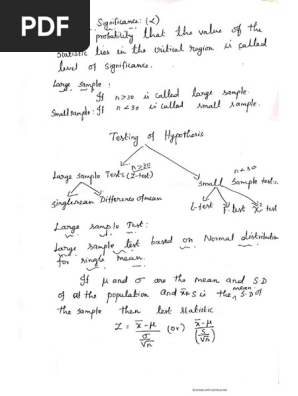 PDF
Significance: (α)
probability that the value of the
statistic lies in the critical region is called
level of significance.
Large sample:
If n>30 is called large sample.
Small sample: If n<30 is called small sample.
Testing of Hypothesis
Large sample Test: n≥30 (Z-test)
Small sample test: n<30
Single mean Difference of mean
t-test F-test χ² test
Large sample Test:
Large sample test based on Normal distribution
for single mean.
If μ and σ are the mean and S.D
of the population and x̄ & S is the mean S.D of
the sample then test statistic
Z = x̄-μ / (σ/√n) (or) x̄-μ / (S/√n)
Scanned with CamScanner